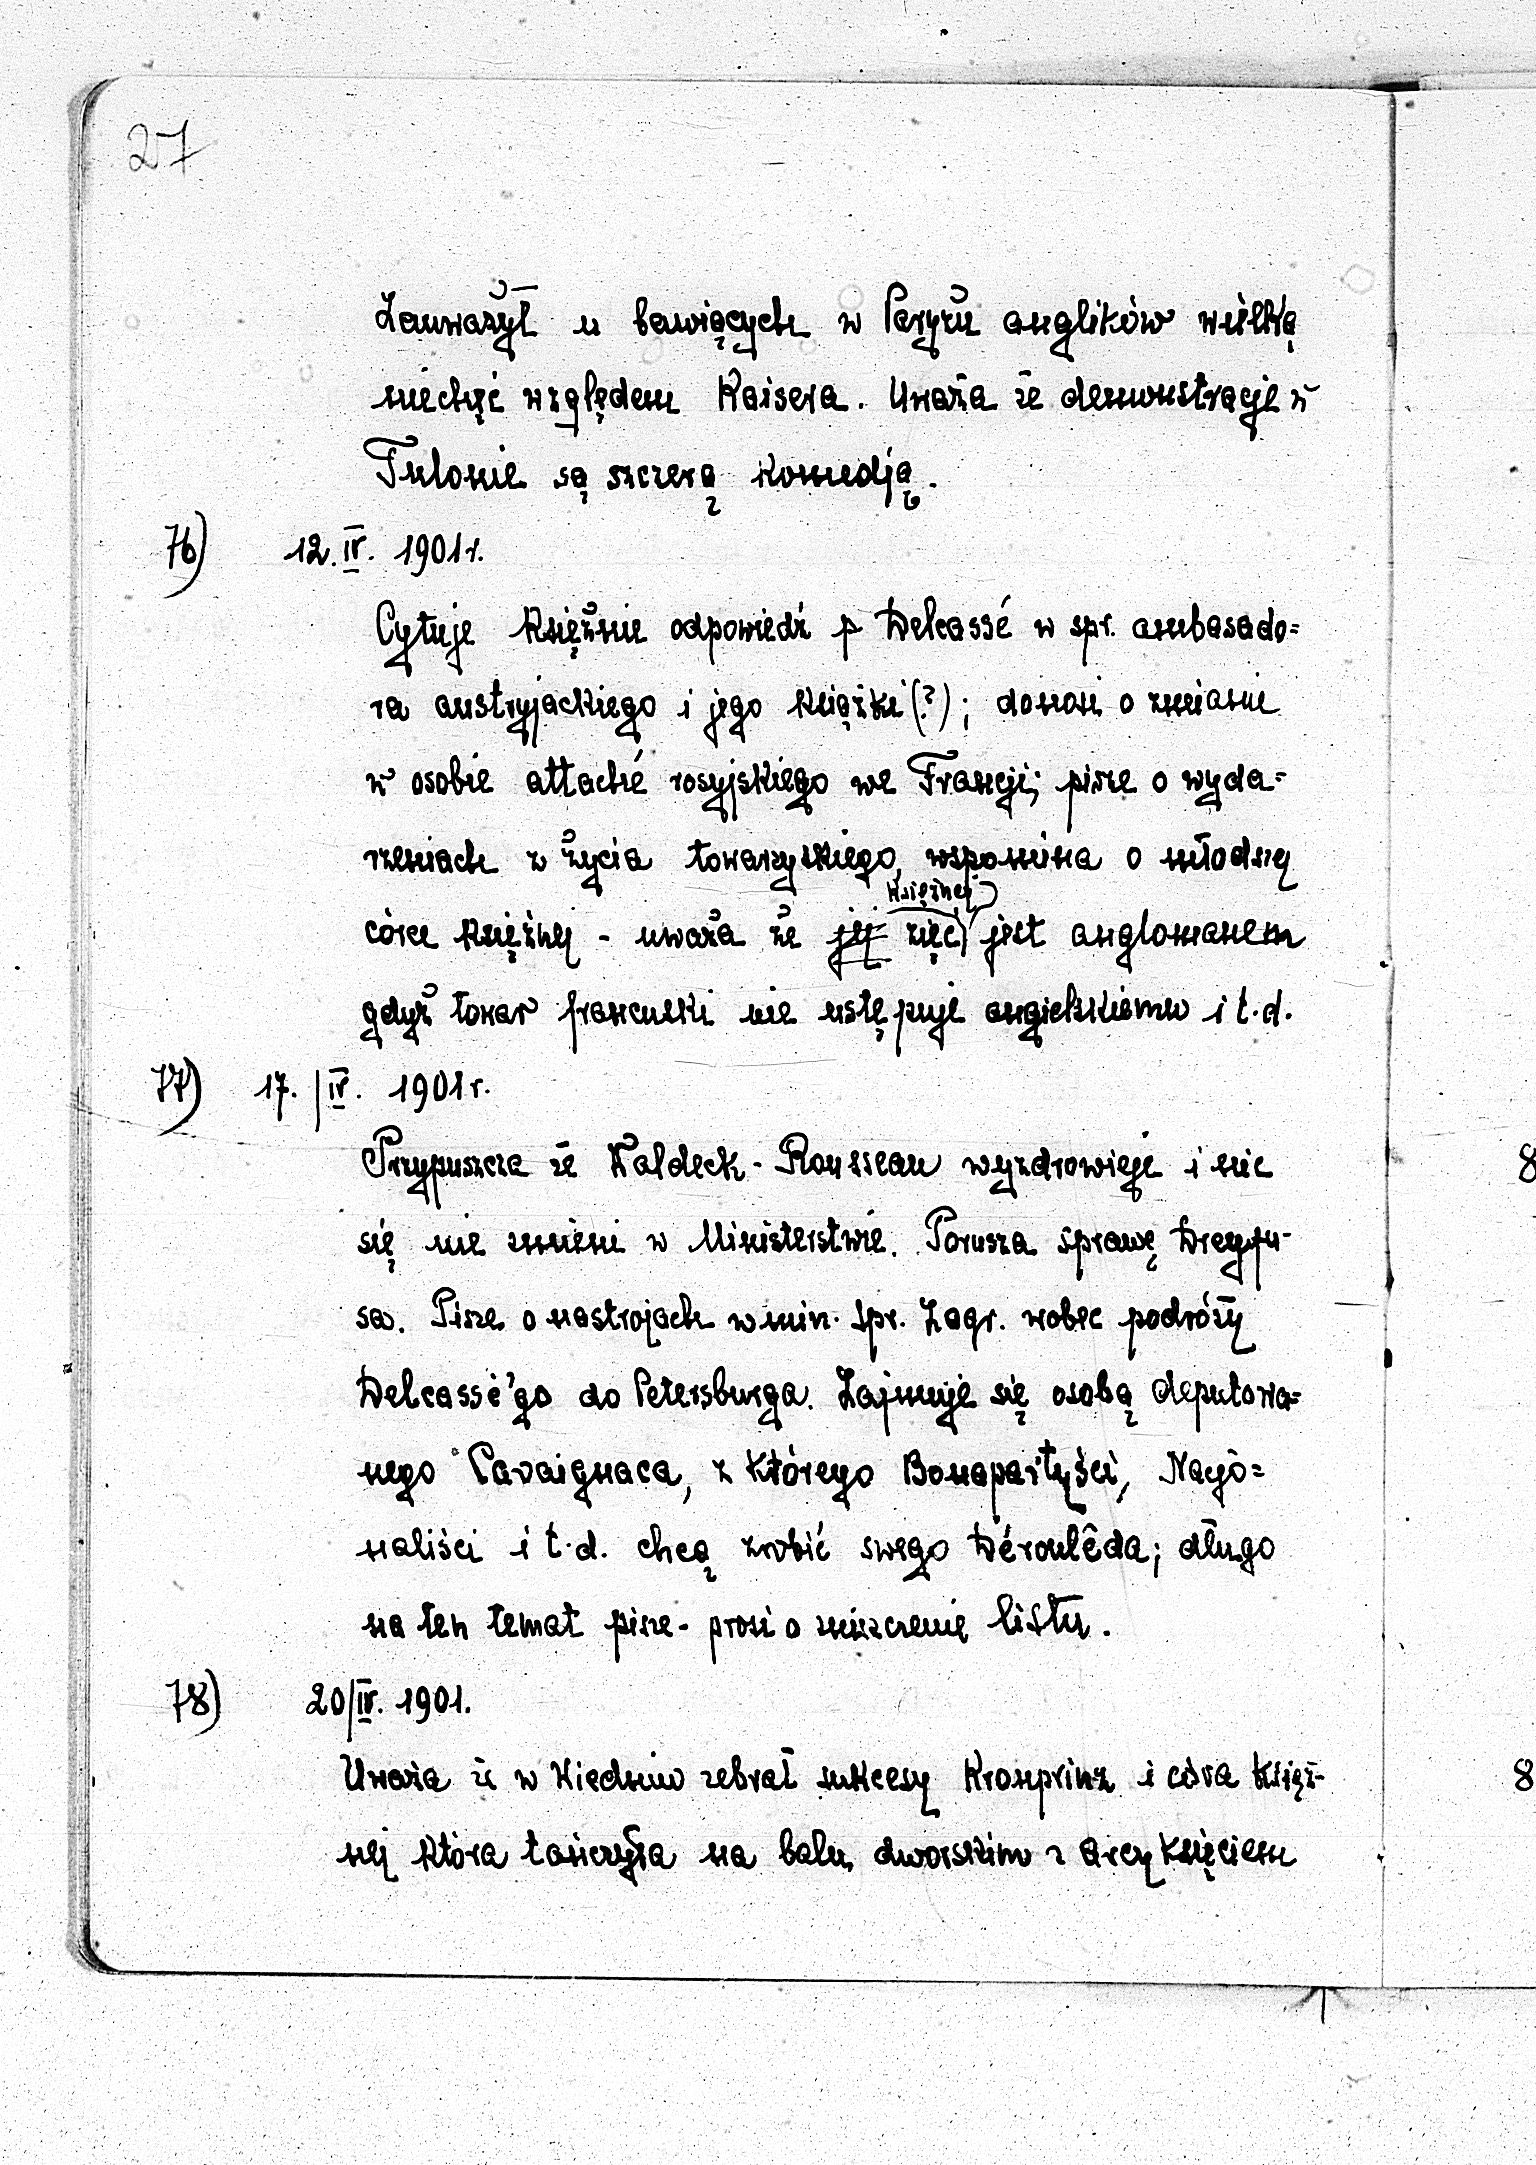 27
Zauważył u bawiących w Paryżu anglików wielką
niechęć względem Kaisera. Uważa że demonstracje w
Tulonie są szczerą komedją.
76) 12.IV. 1901r.
Cytuje księżnie odpowiedź p Delcassé w spr. ambasado=
ra austryjackiego i jego książki (?); donosi o zmianie
w osobie attaché rosyjskiego we Francji; pisze o wyda=
rzeniach z życia towarzyskiego, wspomina o młodszej
córce księżnej - uważa że jej zięć księżnej jest anglomanem
gdyż towar francuski nie ustępuje angielskiemu i t.d.
77) 17./IV. 1901r.
Przypuszcza że Waldeck-Rousseau wyzdrowieje i nic
się nie zmieni w Ministerstwie. Porusza sprawę Dreyfu-
sa. Pisze o nastrojach w min. Spr. Zagr. wobec podróży
Delcassé'go do Petersburga. Zajmuje się osobą deputowa=
nego Cavaignaca, z którego Bonapartyści, Nacjo=
naliści i t.d. chcą zrobić swego Déroulêda; długo
na ten temat pisze - prosi o zniszczenie listu.
78) 20/IV. 1901.
Uważa że w Wiedniu zebrał sukcesy Kronprinz i córa Księż-
nej która tańczyła na balu dworskim z Arcyksięciem
8
8